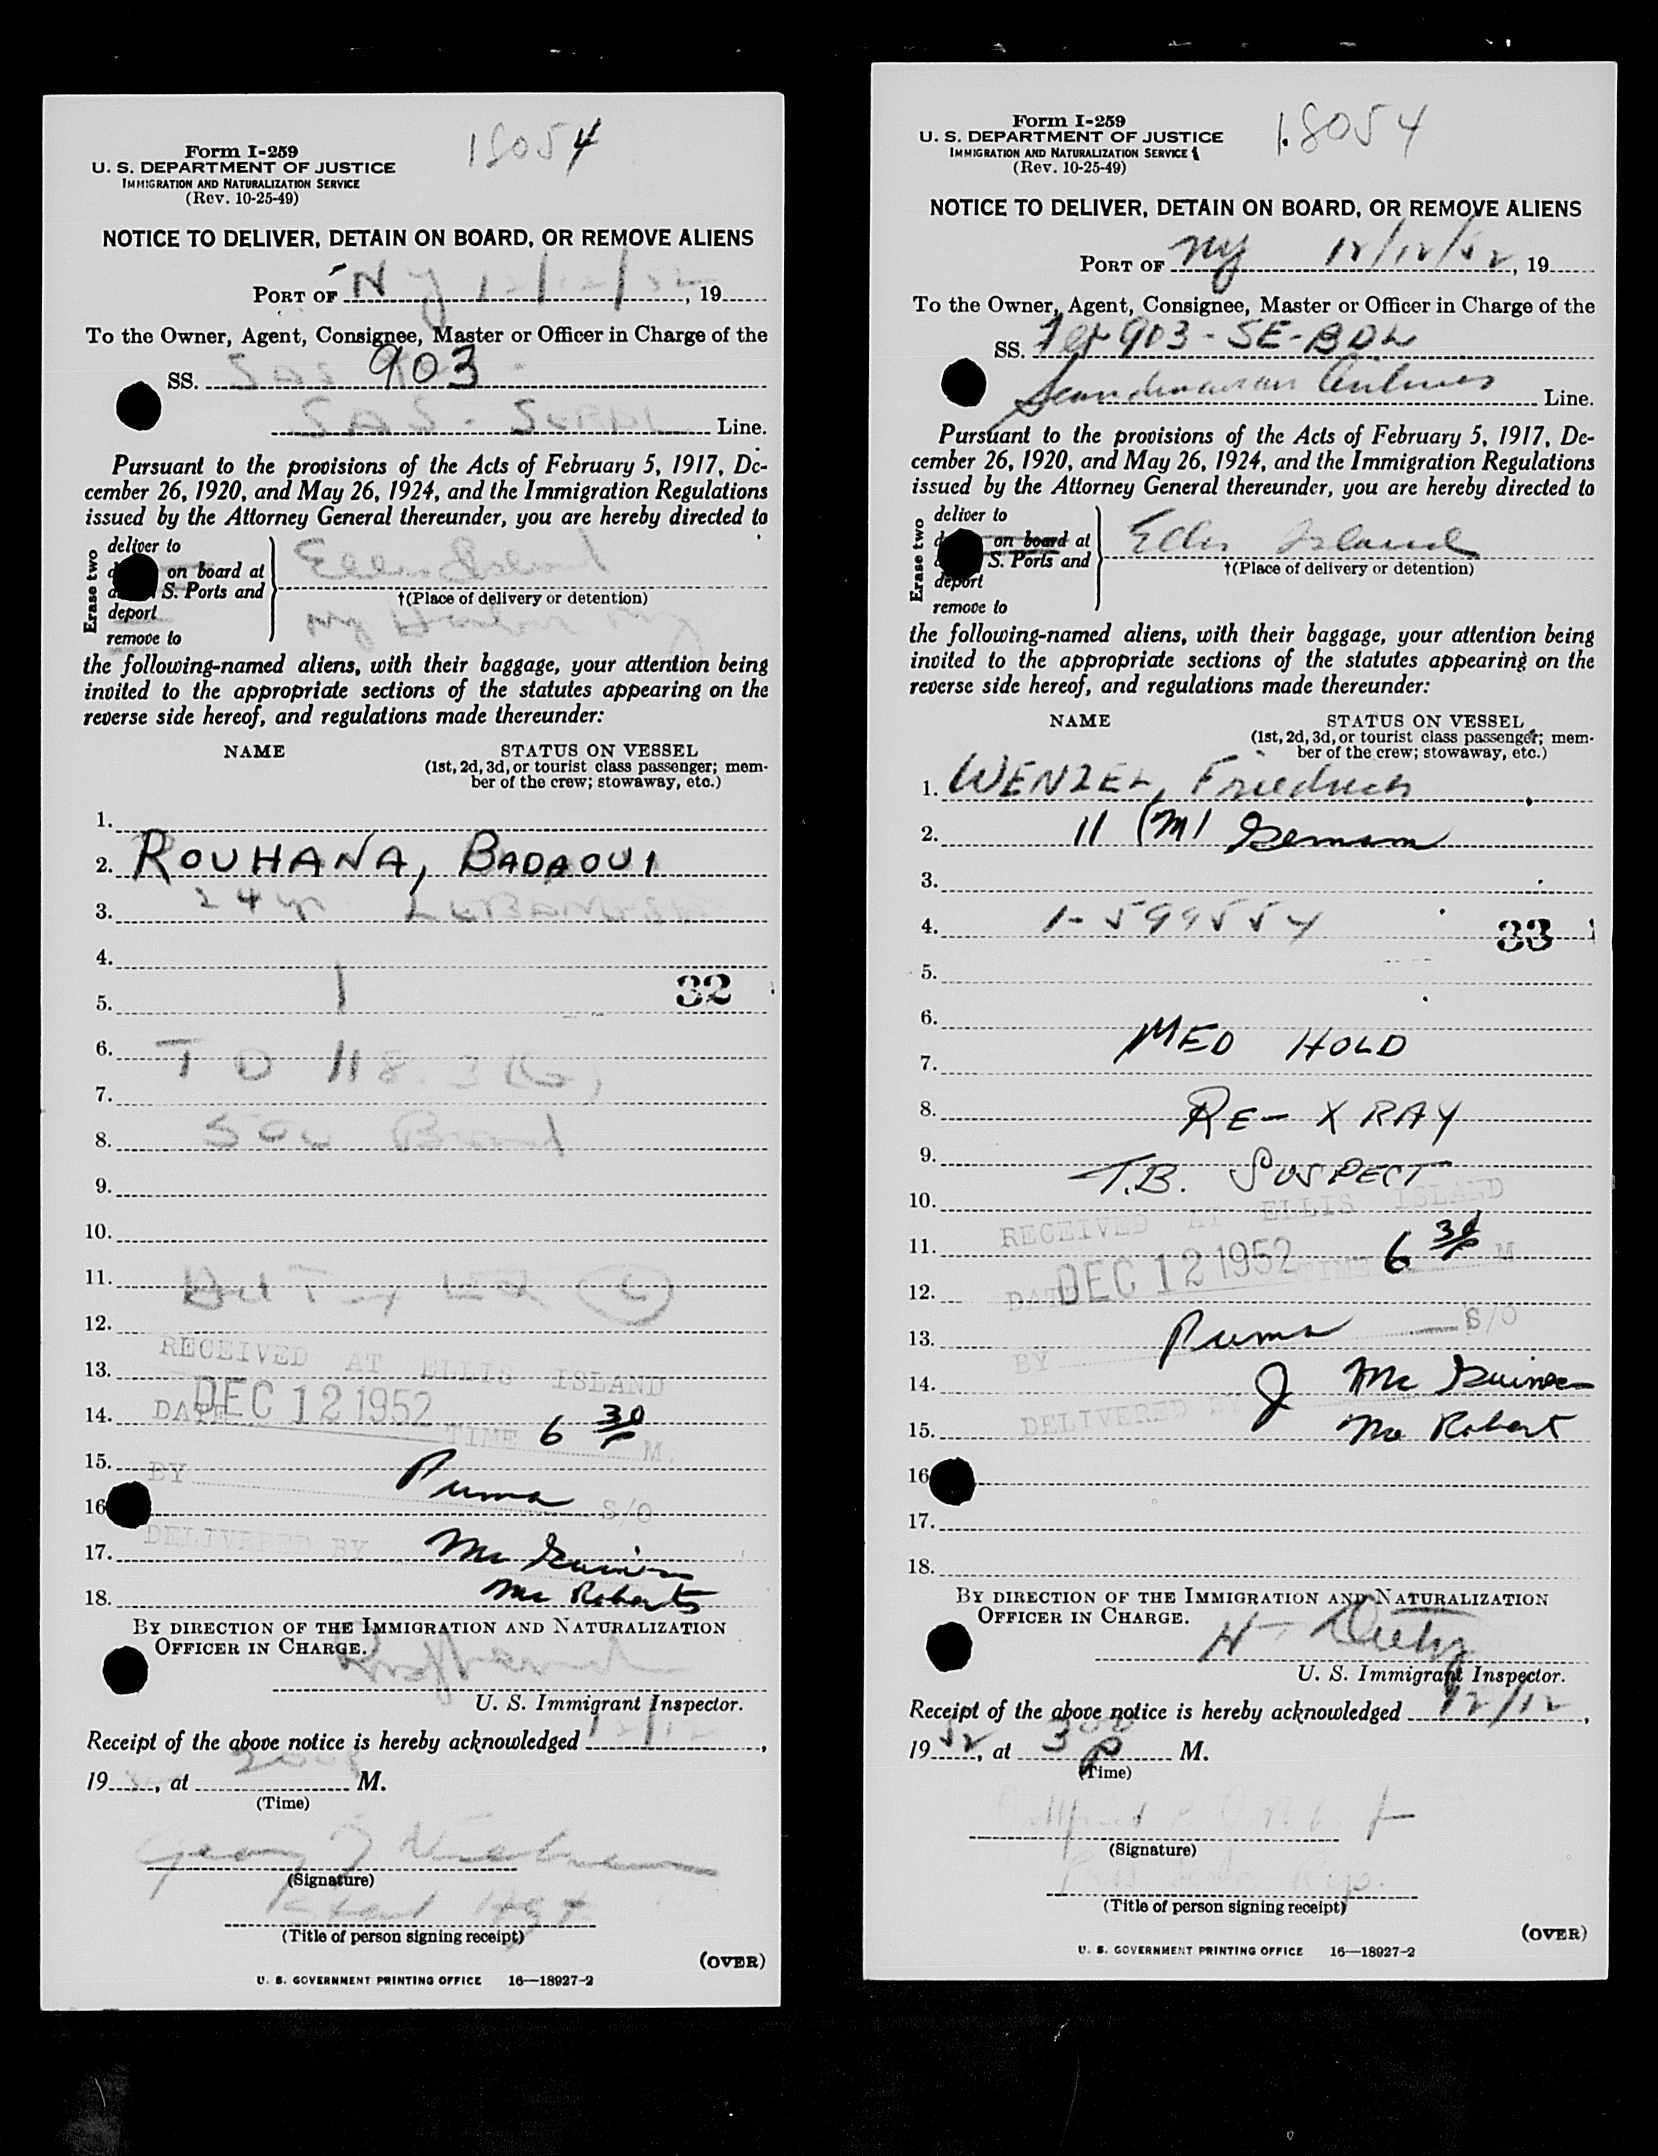 18054
Form I-259
U. S. DEPARTMENT OF JUSTICE
IMMIGRATION AND NATURALIZATION SERVICE
(Rev. 10-25-49)
NOTICE TO DELIVER, DETAIN ON BOARD, OR REMOVE ALIENS
PORT OF NY 12/12/52, 19
To the Owner, Agent, Consignee, Master or Officer in Charge of the
SS. SAS 903
SAS - Line.
Pursuant to the provisions of the Acts of February 5, 1917, De-
cember 26, 1920, and May 26, 1924, and the Immigration Regulations
issued by the Attorney General thereunder, you are hereby directed to
Erase two
deliver to
on board at
S. Ports and
deport
remove to
Ellis Island
†(Place of delivery or detention)
NY Harbor NY
the following-named aliens, with their baggage, your attention being
invited to the appropriate sections of the statutes appearing on the
reverse side hereof, and regulations made thereunder:
NAME STATUS ON VESSEL
(1st, 2d, 3d, or tourist class passenger; mem-
ber of the crew; stowaway, etc.)
1.
2. ROUHANA, BADAOUI
3. 24 yr LEBANESE
4.
5. 1 32
6. T D 118.3
7.
8. Board
9.
10.
11.
12.
RECEIVED AT ELLIS ISLAND
13.
14. DATE DEC 12 1952 TIME 6 30 M.
15. BY Puma S/O
16
17. DELIVERED BY Mc Guiness
18. Mc Roberts
BY DIRECTION OF THE IMMIGRATION AND NATURALIZATION
OFFICER IN CHARGE.
U. S. Immigrant Inspector.
Receipt of the above notice is hereby acknowledged 12/12,
19, at M.
(Time)
(Signature)
(Title of person signing receipt)
(OVER)
U. S. GOVERNMENT PRINTING OFFICE 16—18927-2
18054
Form I-259
U. S. DEPARTMENT OF JUSTICE
IMMIGRATION AND NATURALIZATION SERVICE
(Rev. 10-25-49)
NOTICE TO DELIVER, DETAIN ON BOARD, OR REMOVE ALIENS
PORT OF NY 12/12/52, 19
To the Owner, Agent, Consignee, Master or Officer in Charge of the
SS. 903-SE-BDL
Scandinavian Airlines Line.
Pursuant to the provisions of the Acts of February 5, 1917, De-
cember 26, 1920, and May 26, 1924, and the Immigration Regulations
issued by the Attorney General thereunder, you are hereby directed to
Erase two
deliver to
on board at
S. Ports and
deport
remove to
Ellis Island
†(Place of delivery or detention)
the following-named aliens, with their baggage, your attention being
invited to the appropriate sections of the statutes appearing on the
reverse side hereof, and regulations made thereunder:
NAME STATUS ON VESSEL
(1st, 2d, 3d, or tourist class passenger; mem-
ber of the crew; stowaway, etc.)
1. WENZEL, Friedrich
2. 11 (M) German
3.
4. 1-599554 33
5.
6.
MED HOLD
7.
8. RE-XRAY
9.
T.B. SUSPECT
10.
RECEIVED AT ELLIS ISLAND
11. 6 30 M
12. DATE DEC 12 1952 TIME
13. BY Puma S/O
14. J Mc Guiness
15. DELIVERED BY Mc Robert
16
17.
18.
BY DIRECTION OF THE IMMIGRATION AND NATURALIZATION
OFFICER IN CHARGE.
U. S. Immigrant Inspector.
Receipt of the above notice is hereby acknowledged 12/12,
1952, at 3 00 P M.
(Time)
(Signature)
(Title of person signing receipt)
(OVER)
U. S. GOVERNMENT PRINTING OFFICE 16—18927-2